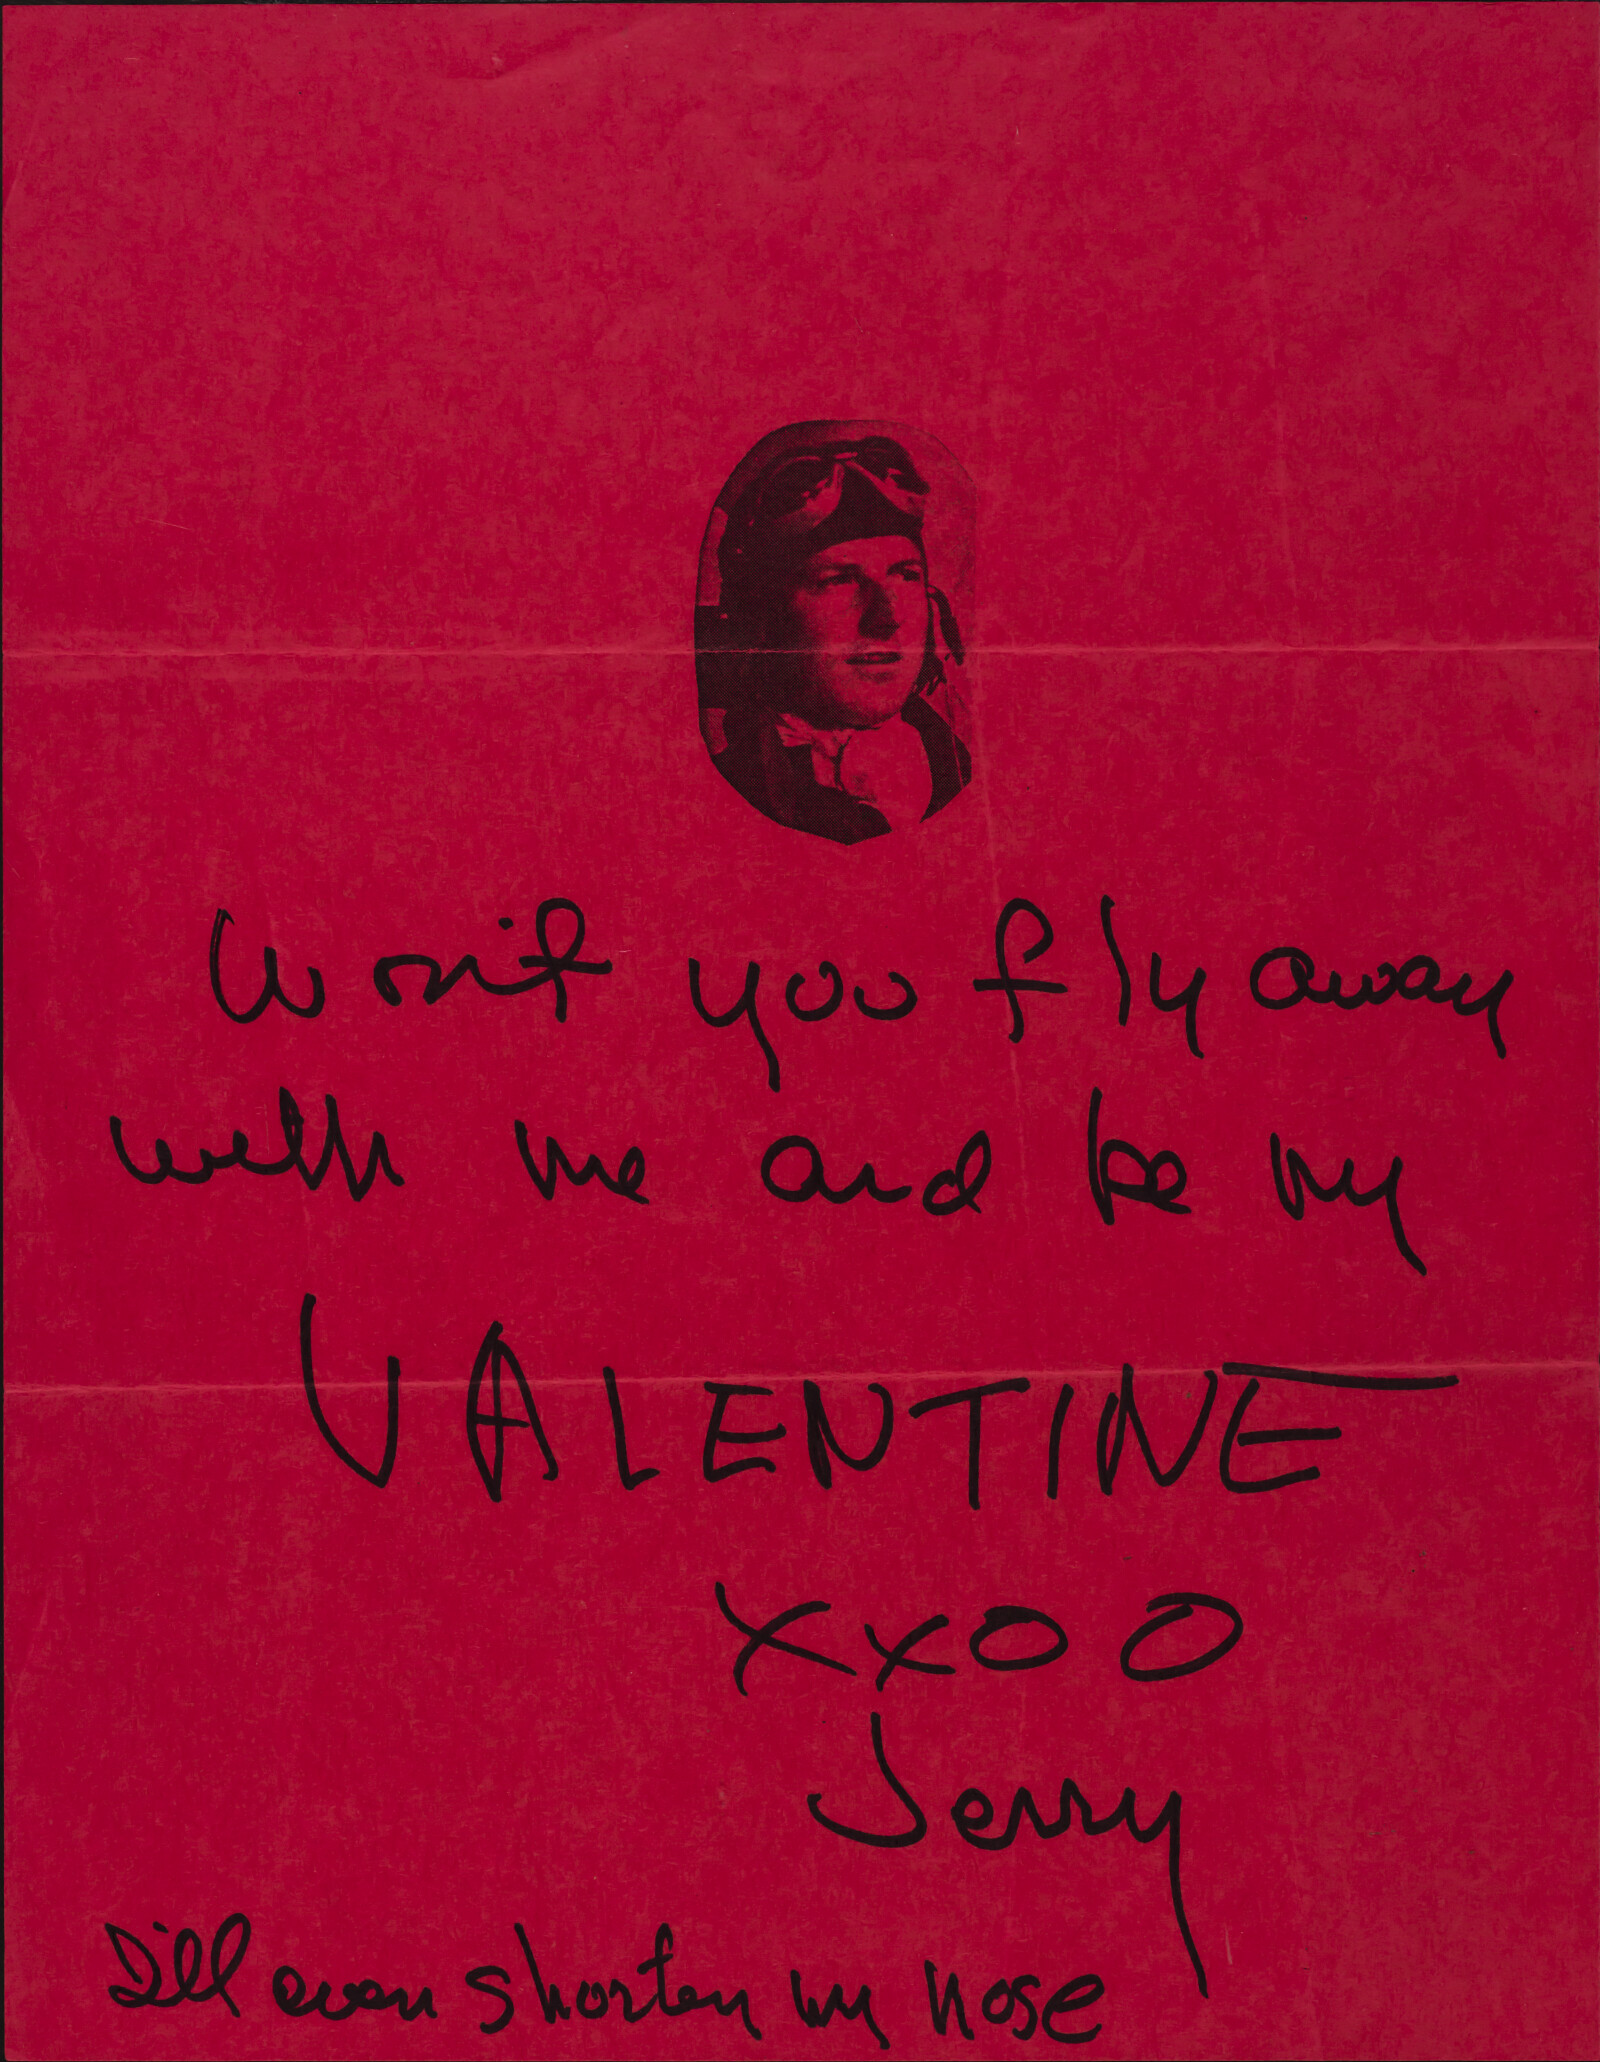 Won't you fly away
with me and be my
VALENTINE
xxoo
Jerry
I'll even shorten my nose